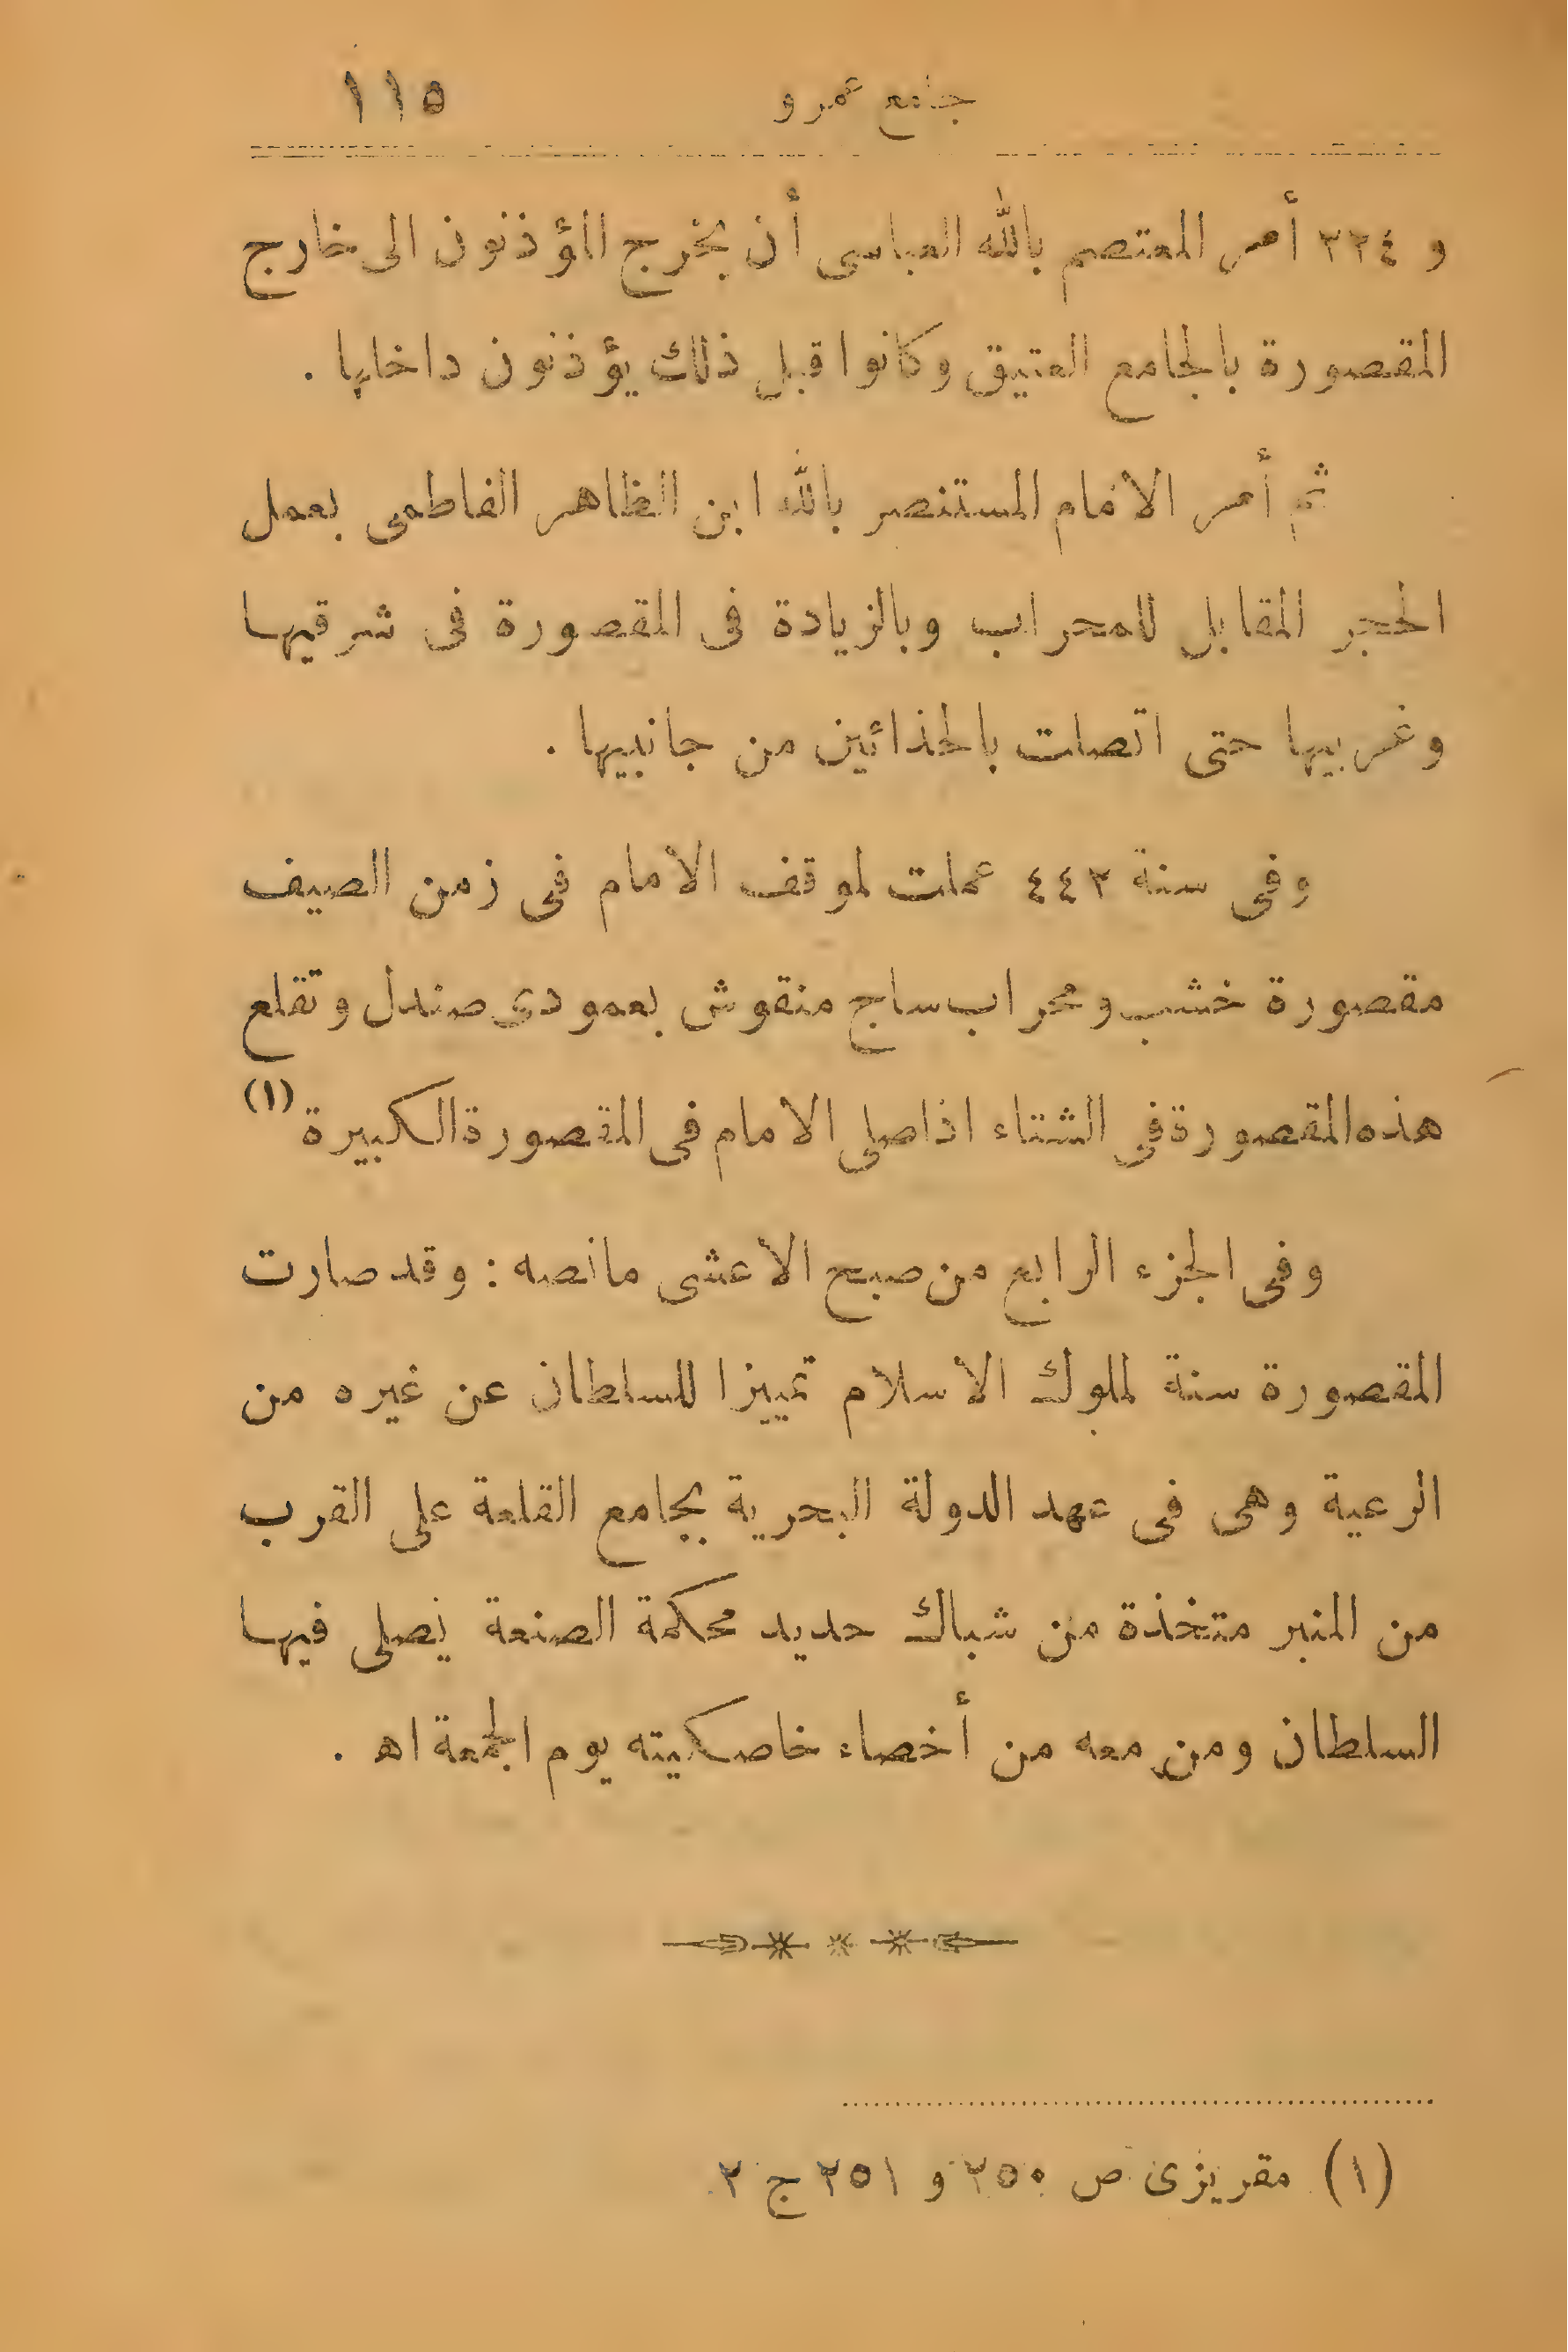 جامع عمرو ١١٥
و ٢٢٤ أمر المعتصم بالله العباسى أن يخرج المؤذنون الى خارج
المقصورة بالجامع العتيق وكانوا قبل ذلك يؤذنون داخلها .
ثم أمر الامام المستنصر بالله ابن الظاهر الفاطمى بعمل
الحجر المقابل للمحراب وبالزيادة فى المقصورة فى شرقيها
وغربيها حتى اتصلت بالحذائين من جانبيها .
وفى سنة ٤٤٢ عملت لموقف الامام فى زمن الصيف
مقصورة خشب ومحراب ساج منقوش بعمودى صندل وتقلع
هذه المقصورة فى الشتاء اذا صلى الامام فى المقصورة الكبيرة (١)
وفى الجزء الرابع من صبح الأعشى مانصه : وقد صارت
المقصورة سنة لملوك الاسلام تمييزا للسلطان عن غيره من
الرعية وهى فى عهد الدولة البحرية بجامع القلعة على القرب
من المنبر متخذة من شباك حديد محكمة الصنعة يصلى فيها
السلطان ومن معه من أخصاء خاصكيته يوم الجمعة اه .
(١) مقريزى ص ٢٥٠ و ٢٥١ ج ٢